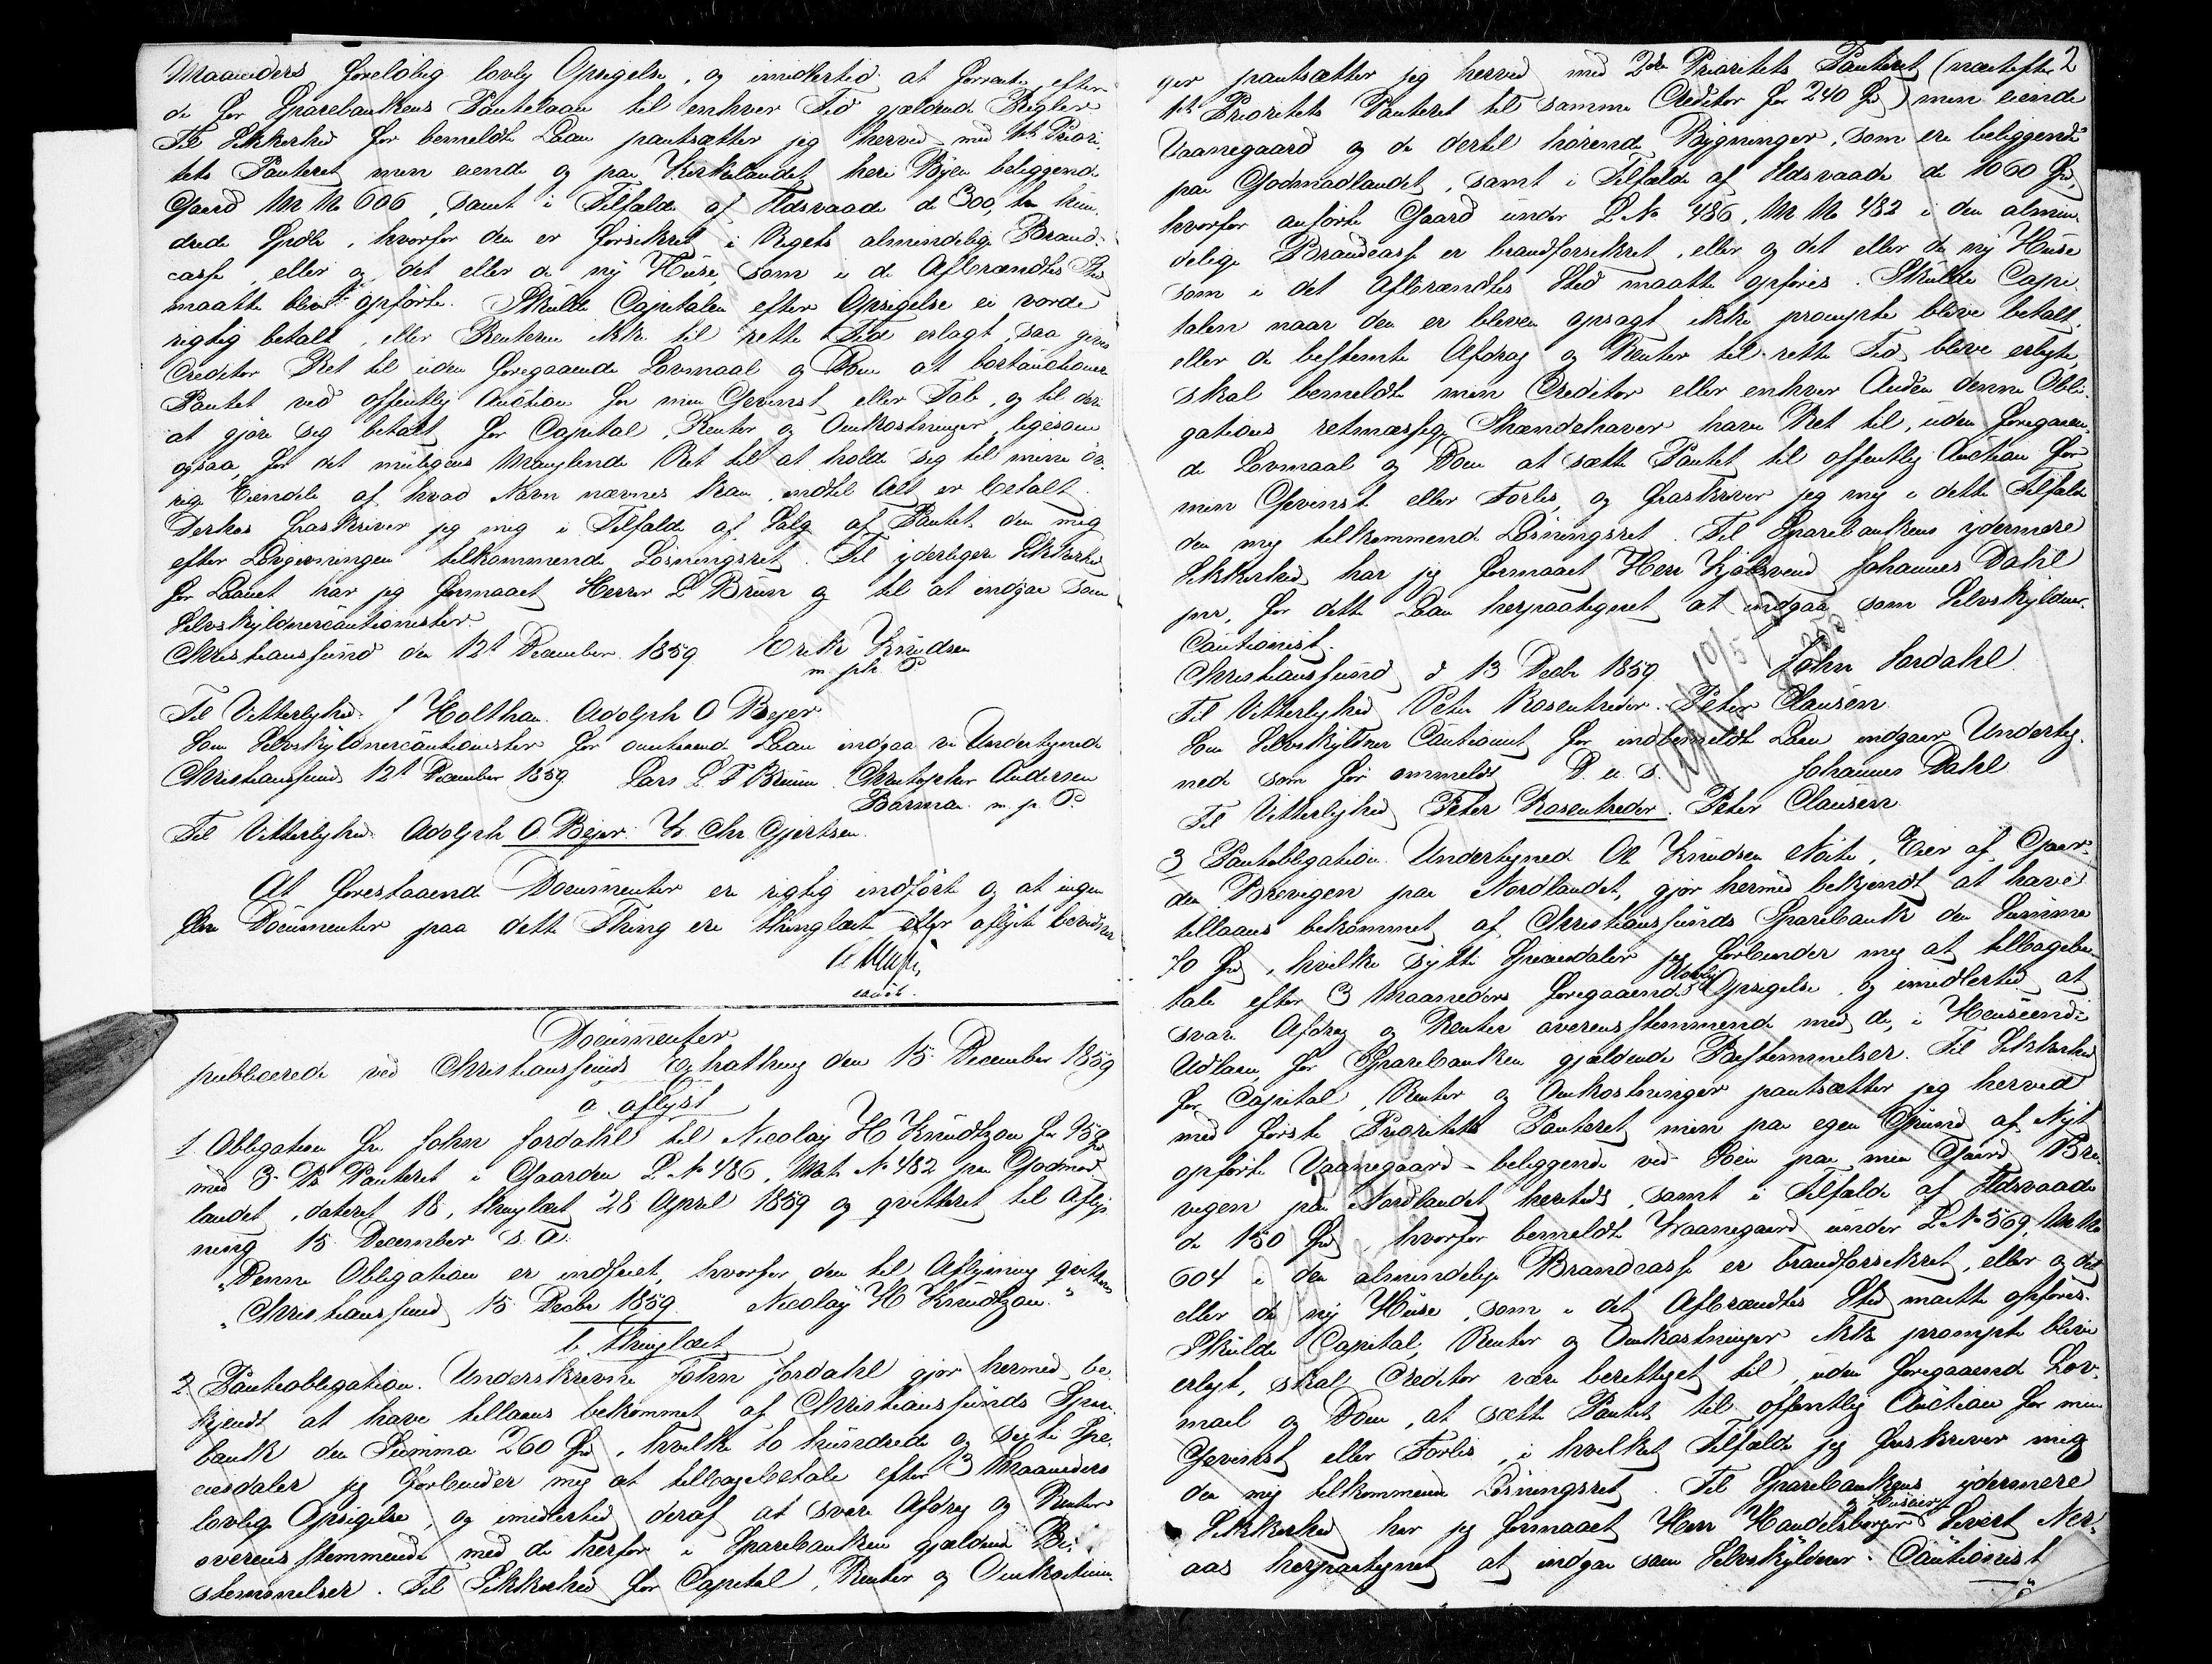 Maaneders foreløbig lovlig Opsigelse, og imidlertid at forrente efter
de for Sparebankens Pantelaan til enhver Tid gjældende Regler.
Til Sikkerhed for bemeldte Laan pantsætter jeg herved med 1ste Priori-
tets Panteret min eiende og paa Kirkelandet heri Byen beliggende
Gaard Mr No 606, samt i Tilfælde af Ildsvaade de 300, tre hun-
drede Spdlr, hvorfor den er forsikret i Rigets almindelige Brand-
casse, eller og det eller de ny Huse, som i de Afbrændtes Sted
maatte blive opførte. Skulde Capitalen efter Opsigelse ei vorde
rigtig betalt, eller Renterne ikke til rette Tid erlagt, saa gives
Creditor Ret til uden foregaaende Lovmaal og Dom at bortauctionere
Pantet ved offentlig Auction for min Gevinst eller Tab, og til der
at gjøre sig betalt for Capital, Renter og Omkostninger, ligesom
ogsaa for det muligens Manglende Ret til at holde sig til mine øv-
rige Eiendele af hvad Navn nævnes kan, indtil Alt er betalt.
Derhos fraskriver jeg mig i Tilfælde af Salg af Pantet den mig
efter Lovgivningen tilkommende Løsningsret. Til yderligere Sikkerhed
for Laanet har jeg formaaet Herrer L Brun og til at indgaae som
Selvskyldnercautionister.
Christiansund den 12t December 1859 Erik Knudsen
m. p. P.
Til Vitterlighed J Holthan Adolph O Beyer
Som Selvskyldnercautionister for omstaaende Laan indgaa vi Undertegnede
Christiansund 12t December 1859. Lars L. F Bruun Christopher Andersen
Barman m. p. P.
Til Vitterlighed Adolph O. Beyer. Chr Gjertsen.
At forestaaende Documenter er rigtig indført og at ingen
flere Documenter paa dette Thing ere thinglæst eller aflyste bevidnes
const.
Documenter
publicerede ved Christiansunds Extrathing den 15 December 1859
a aflyst
1 Obligation fra John Jordahl til Nicolay H Knudtzon for 959 Spd
med 3 Pr Panteret i Gaarden L. No 486, Mat. No 482 paa Godmad
landet, dateret 18, thinglæst 28 April 1859 og qvitteret til Aflys
ning 15 December s. A.
"Denne Obligation er indfriet, hvorfor den til Aflysning qvitteres
"Christiansund 15 Decbr 1859. Nicolay H Knudtzon."
b thinglæst
2 Panteobligation. Underskrevne John Jordahl gjør hermed be-
kjendt at have tillaans bekommet af Christiansunds Spare-
bank den Summa 260 Spd, hvilke to hundrede og sexti Spe-
ciesdaler jeg forbinder mig at tilbagebetale efter 3 Maaneders
lovlig Opsigelse, og imidlertid deraf at svare Afdrag og Renter
overensstemmende med de herfor i Sparebanken gjældende Be-
stemmelser. Til Sikkerhed for Capital, Renter og Omkostnin-
ger pantsætter jeg herved med 2den Prioritets Panteret (næstefter 2
1ste Prioritets Panteret til samme Creditor for 240 Spd) min eiende
Vaanegaard og de dertil hørende Bygninger, som ere beliggende
paa Godmadlandet, samt i Tilfælde af Ildsvaade de 1060 Spd,
hvorfor anførte Gaard under L No 486, Mr No 482 i den almin-
delige Brandcasse er brandforsikret, eller og det eller de ny Huse
som i det Afbrændtes Sted maatte opføres. Skulde Capi-
talen naar den er bleven opsagt ikke prompte blive betalt,
eller de bestemte Afdrag og Renter til rette Tid blive erlagte
skal bemeldte min Creditor eller enhver Anden denne Obli-
gations retmæssige Ihændehaver have Ret til, uden foregaaen-
de Lovmaal og Dom at sætte Pantet til offentlig Auction for
min Gevinst eller Forlis, og fraskriver jeg mig i dette Tilfælde
den mig tilkommende Løsningsret. Til Sparebankens ydermere
Sikkerhed har jeg formaaet Herr Kjøbsvend Johannes Dahl
jnr, for dette Laan herpaategnet at indgaa som Selvskyldner-
Cautionist.
Christiansund d 13 Decbr 1859. John Jordahl.
Til Vitterlighed Peter Rosentreder. Peter Clausen.
Som Selvskyldner Cautionist for indbemeldte Laan indgaaer Underteg-
nede som før ommeldt D. u. s. Johannes Dahl.
Til Vitterlighed Peter Rosentreder. Peter Clausen.
3 Panteobligation. Undertegnede Ole Knudsen Eier af Gaar-
den Brevegen paa Nordlandet, gjør hermed bekjendt at have
tillaans bekommet af Christiansunds Sparebank den Summa
70 Spd, hvilke sytti Speciedaler jeg forbinder mig at tilbagebe-
tale efter 3 Maaneders foregaaende lovlig Opsigelse, og imidlertid at
svare Afdrag og Renter overensstemmende med de, i Henseende
Udlaan for Sparebanken gjældende Bestemmelser. Til Sikkerhed
for Capital, Renter og Omkostninger pantsætter jeg herved
med første Prioritets Panteret min paa egen Grund af Nyt
opførte Vaanegaard beliggende ved Søen paa min Gaard Bre-
vegen paa Nordlandet hersteds, samt i Tilfælde af Ildsvaade
de 150 Spd, hvorfor bemeldte Vaanegaard under L No 569, Mr No
604 i den almindelige Brandcasse er brandforsikret, eller og det
eller de ny Huse, som i det Afbrændtes Sted maatte opføres.
Skulde Capital, Renter og Omkostninger ikke prompte blive
erlagt, skal Creditor være berettiget til, uden foregaaende Lov-
maal og Dom, at sætte Pantet til offentlig Auction for min
Gevinst eller Forlis, i hvilket Tilfælde jeg fraskriver mig
den mig tilkommende Løsningsret. Til Sparebankens ydermere
Sikkerhed har jeg formaaet Herr Handelsborger og Huseier Sivert Ner-
aas herpaategnet at indgaa som Selvskyldner-Cautionist